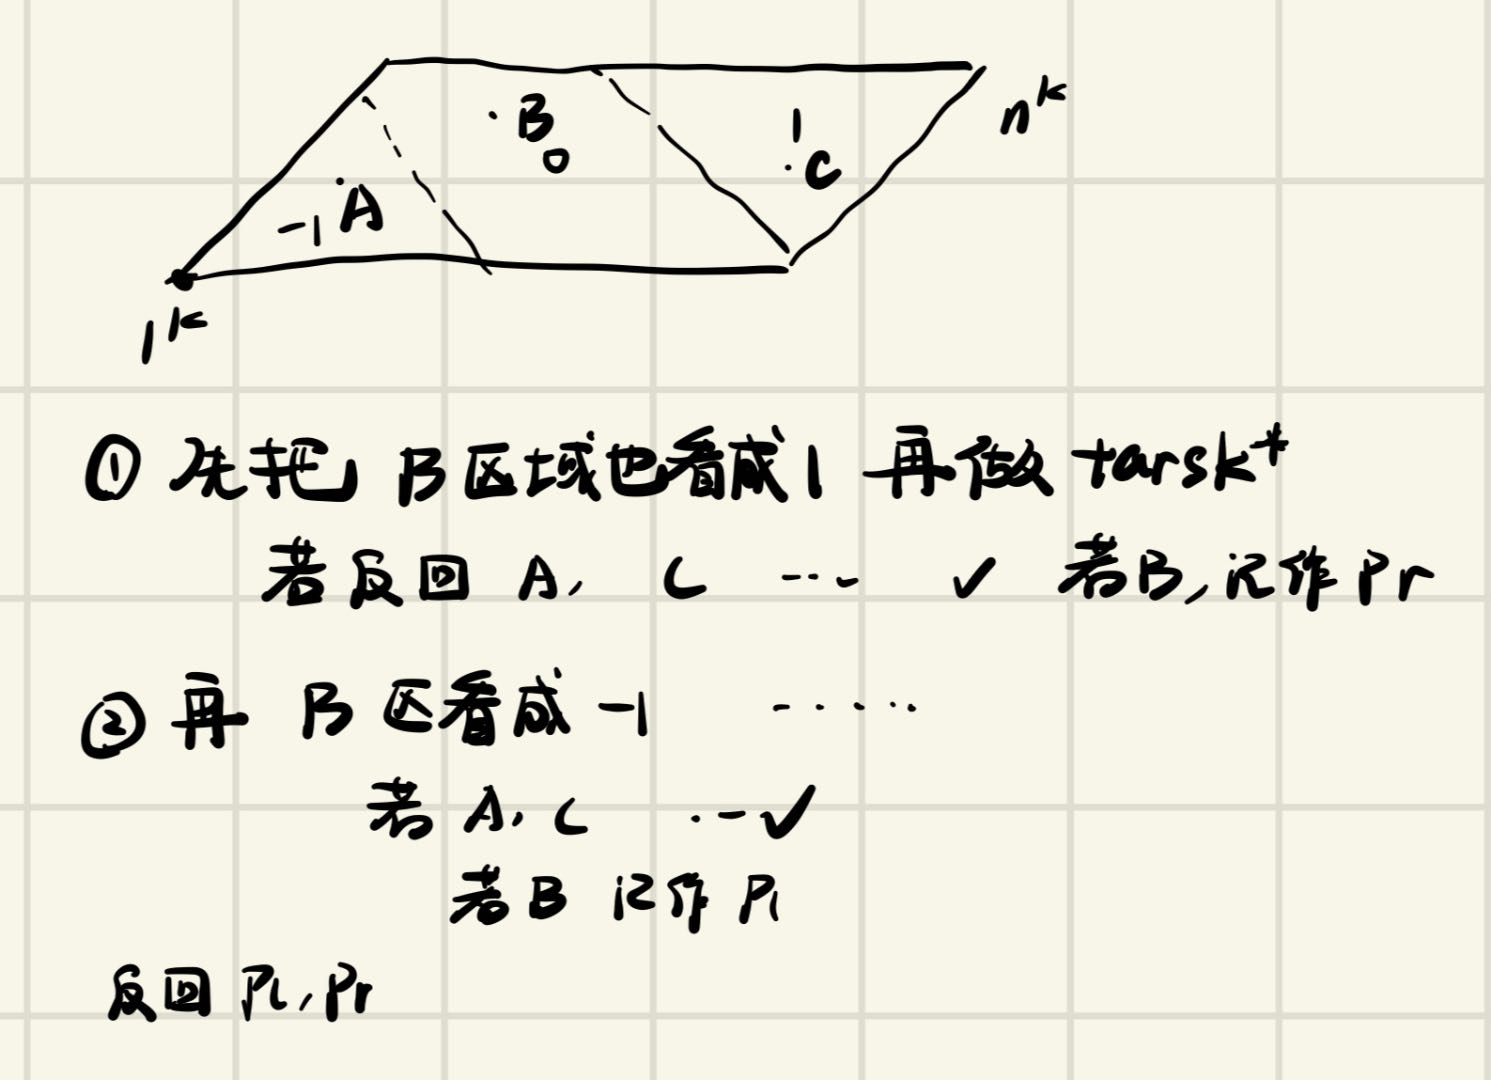 n^k
B
0
1
C
-1 A
1^k
① 先把 B区域也看成1 再做 tarsk^+
若反回 A, C ---- ✓ 若B,记作 Pr
② 再 B区看成 -1 .....
若 A, C .--✓
若B 记作 Pl
反回 Pl, Pr